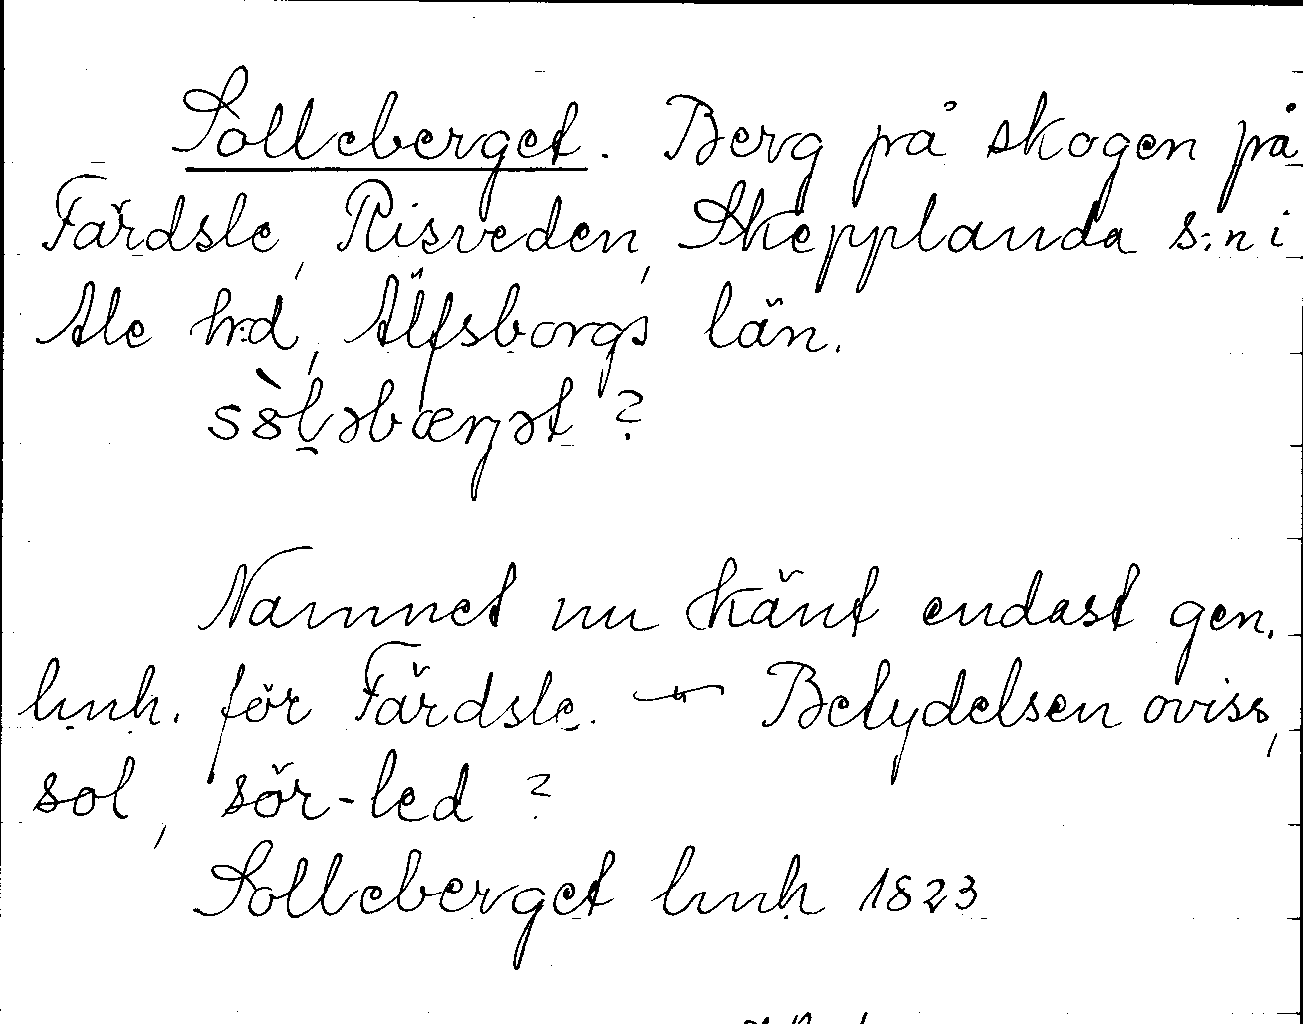 Solleberget. Berg på skogen på
Färdsle, Risveden, Skepplanda s:n i
Ale h:d, Älfsborgs län.
sȯ̀l̥əbærgət ?
Namnet nu känt endast gen.
lmh. för Färdsle. — Betydelsen oviss,
sol, sör-led ?
Solleberget lmh 1823